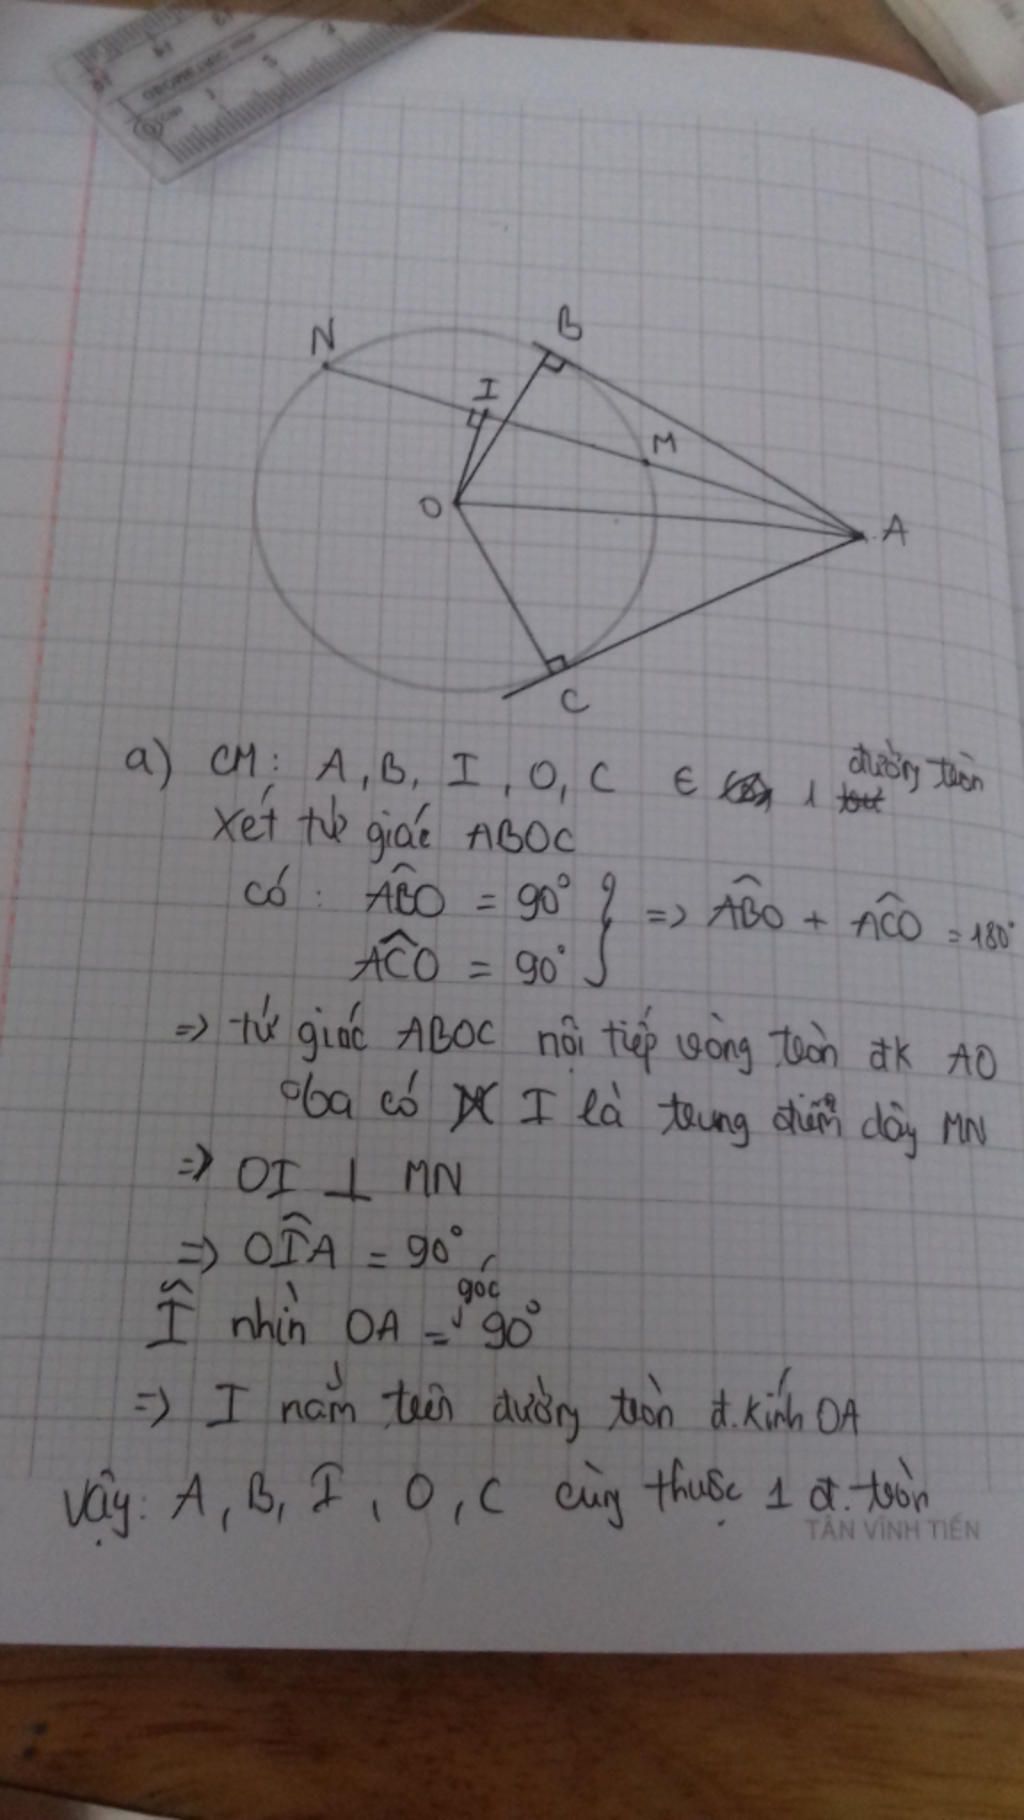 N
B
I
M
O
A
C
a) CM: A, B, I, O, C ∈ 1 đường tròn
Xét tứ giác ABOC
có: ABO = 90° } => ABO + ACO = 180°
ACO = 90°
=> tứ giác ABOC nội tiếp vòng tròn đk AO
có I là trung điểm dây MN
=> OI ⊥ MN
=> OIA = 90°
I nhìn OA = góc 90°
=> I nằm trên đường tròn đ.kính OA
Vậy: A, B, I, O, C cùng thuộc 1 đ.tròn
TÂN VĨNH TIẾN